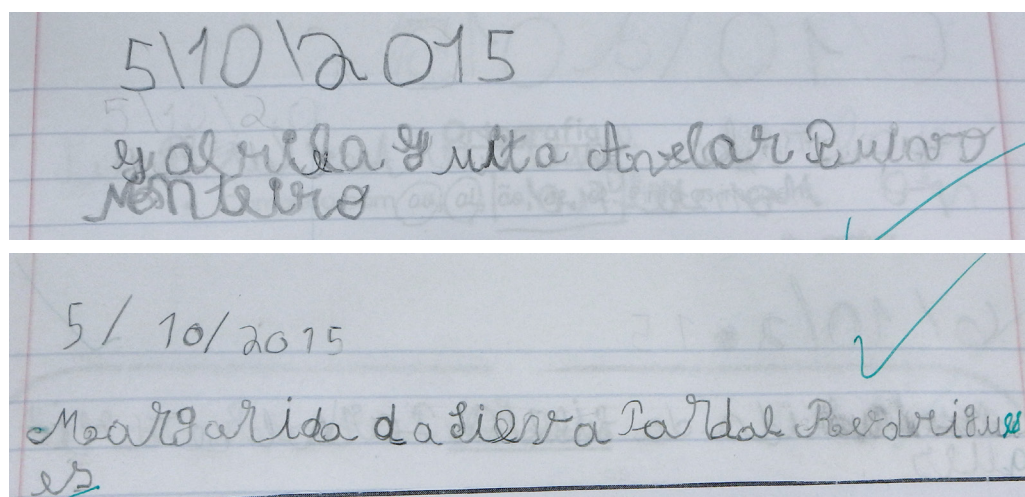 5\10\2015
Gabriela Guita Avelar Ruivo
Monteiro
5/10/2015
Margarida da Silva Pardal Rodrigues
es